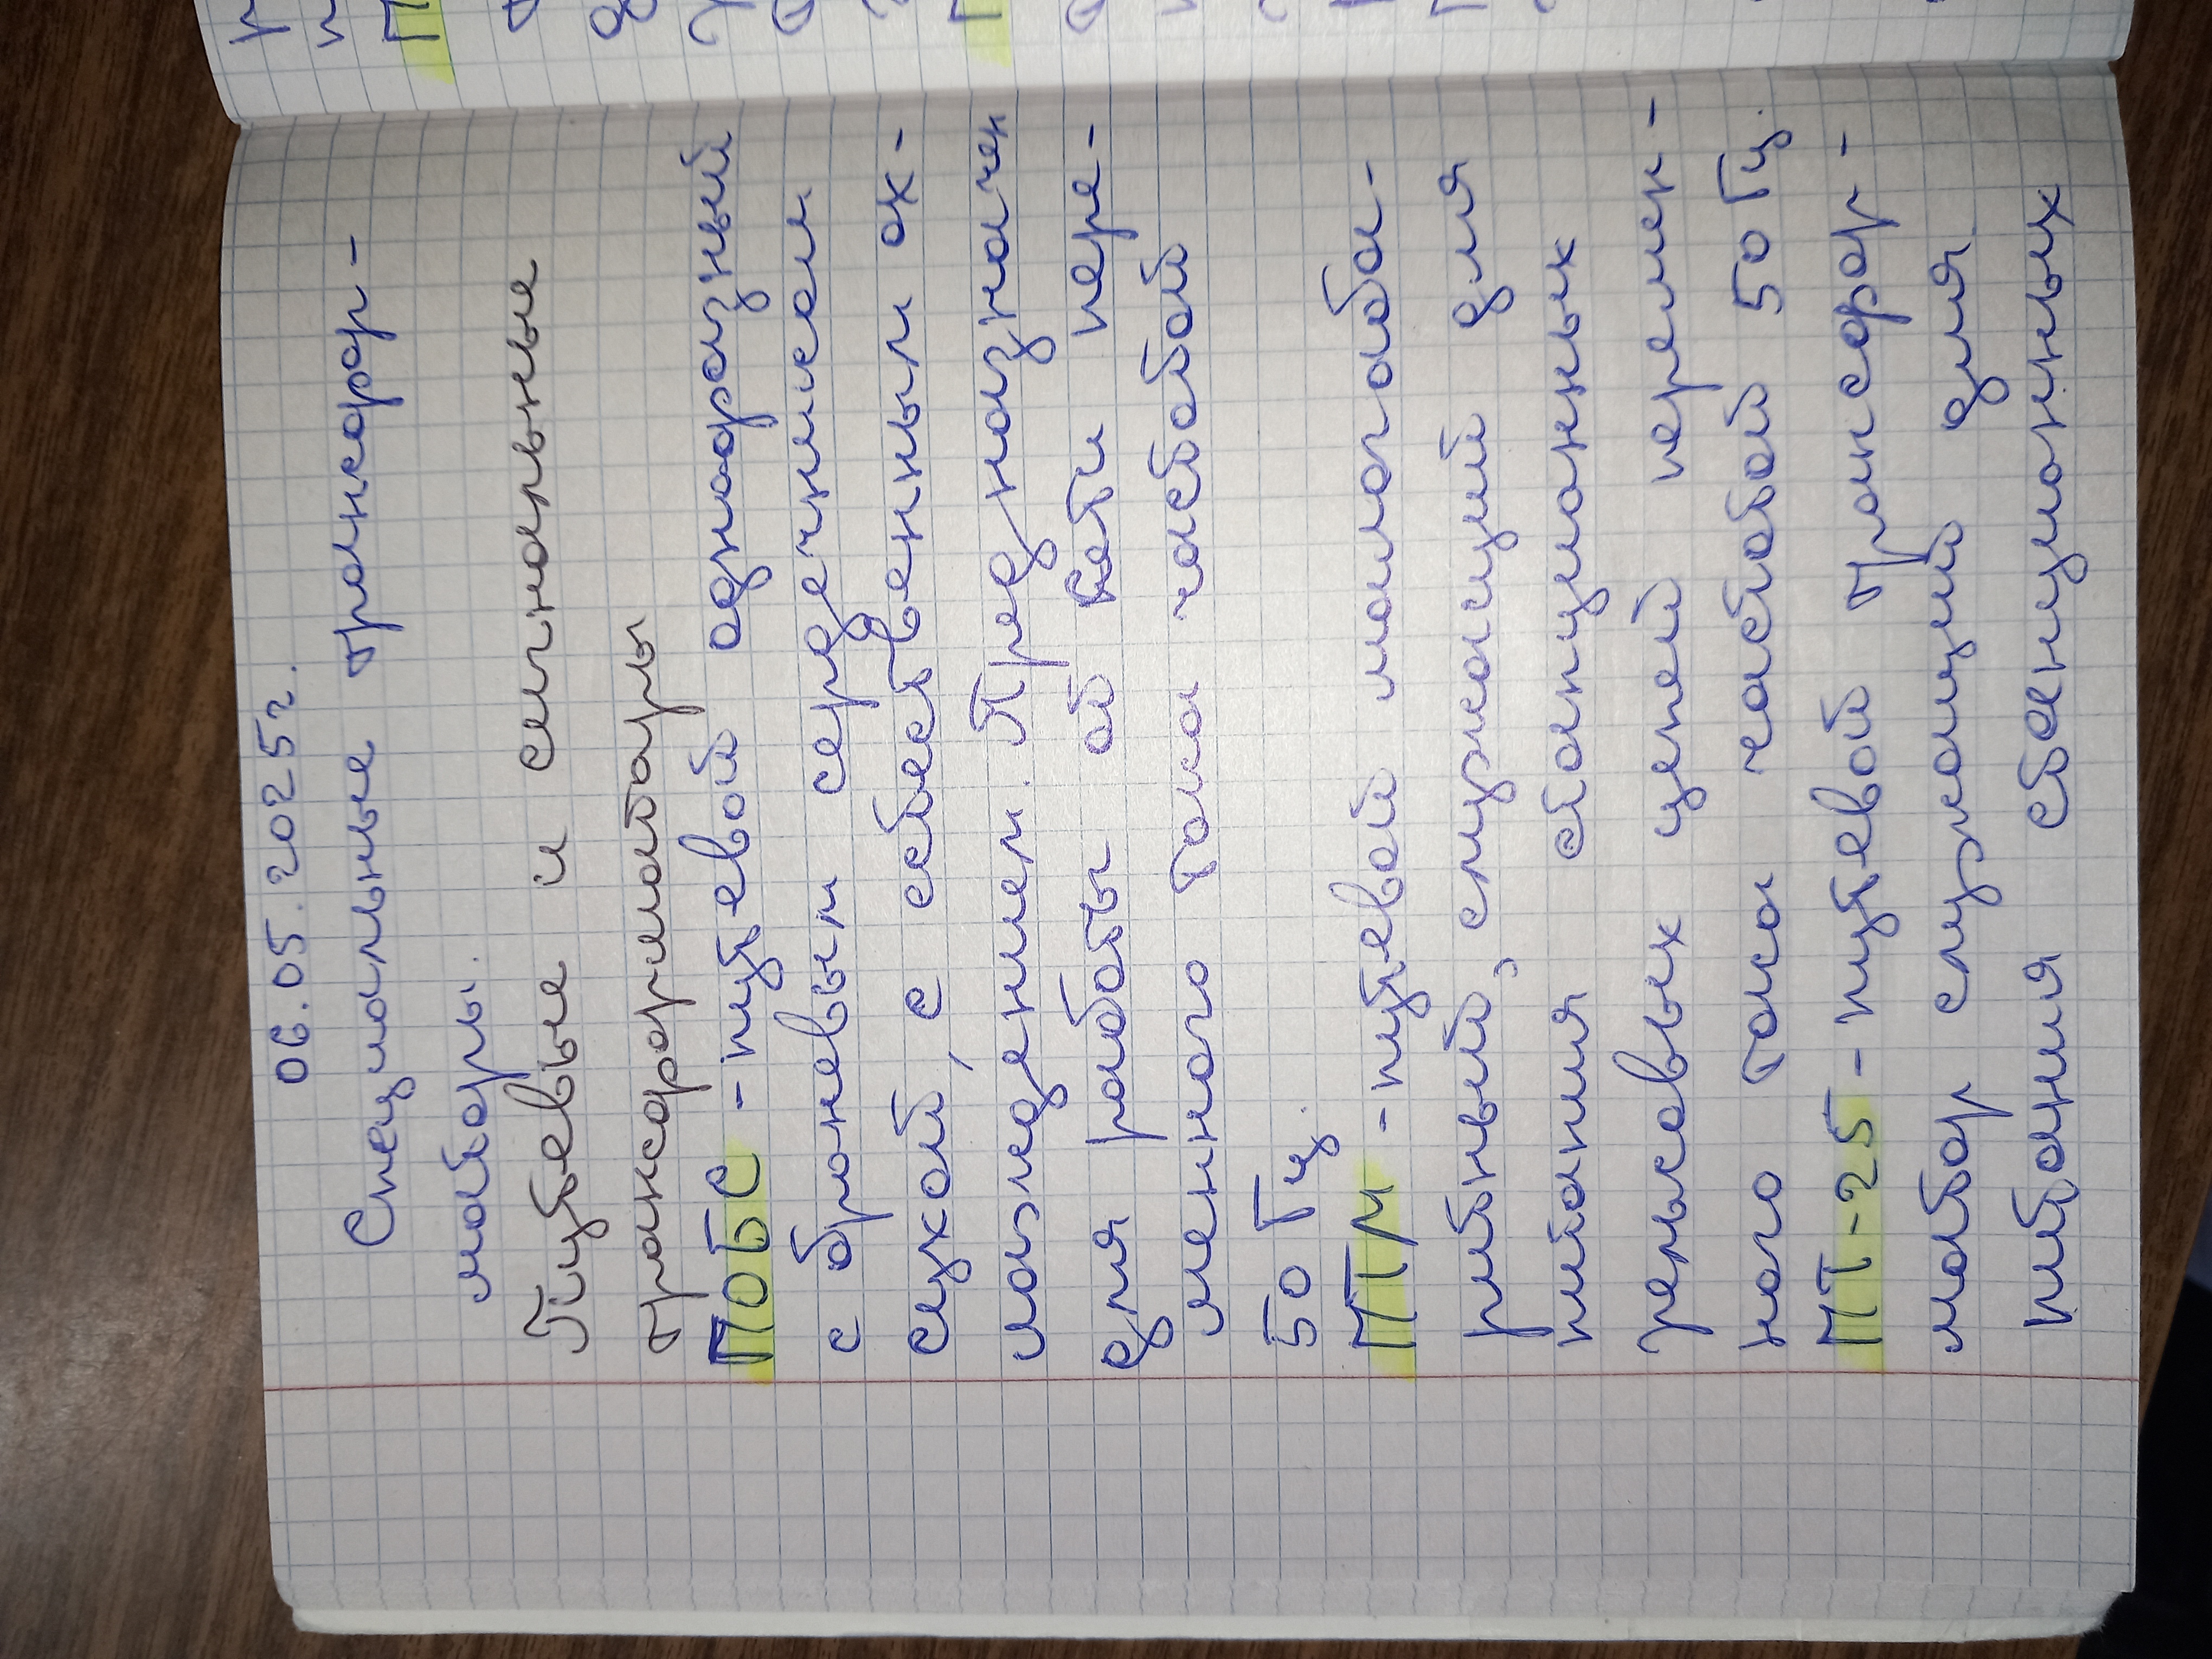 06.05.2025г.
Специальные трансфор-
маторы.
Путевые и сигнальные
трансформаторы
ПОБС - путевой однофазный
с броневым сердечником
сухой, с естественным ох-
лаждением. Предназначен
для работы от сети пере-
менного тока частотой
50 Гц.
ПТМ - путевой малогаба-
ритный, служащий для
питания станционных
рельсовых цепей перемен-
ного тока частотой 50 Гц.
ПТ-25 - путевой трансфор-
матор служащий для
питания станционных